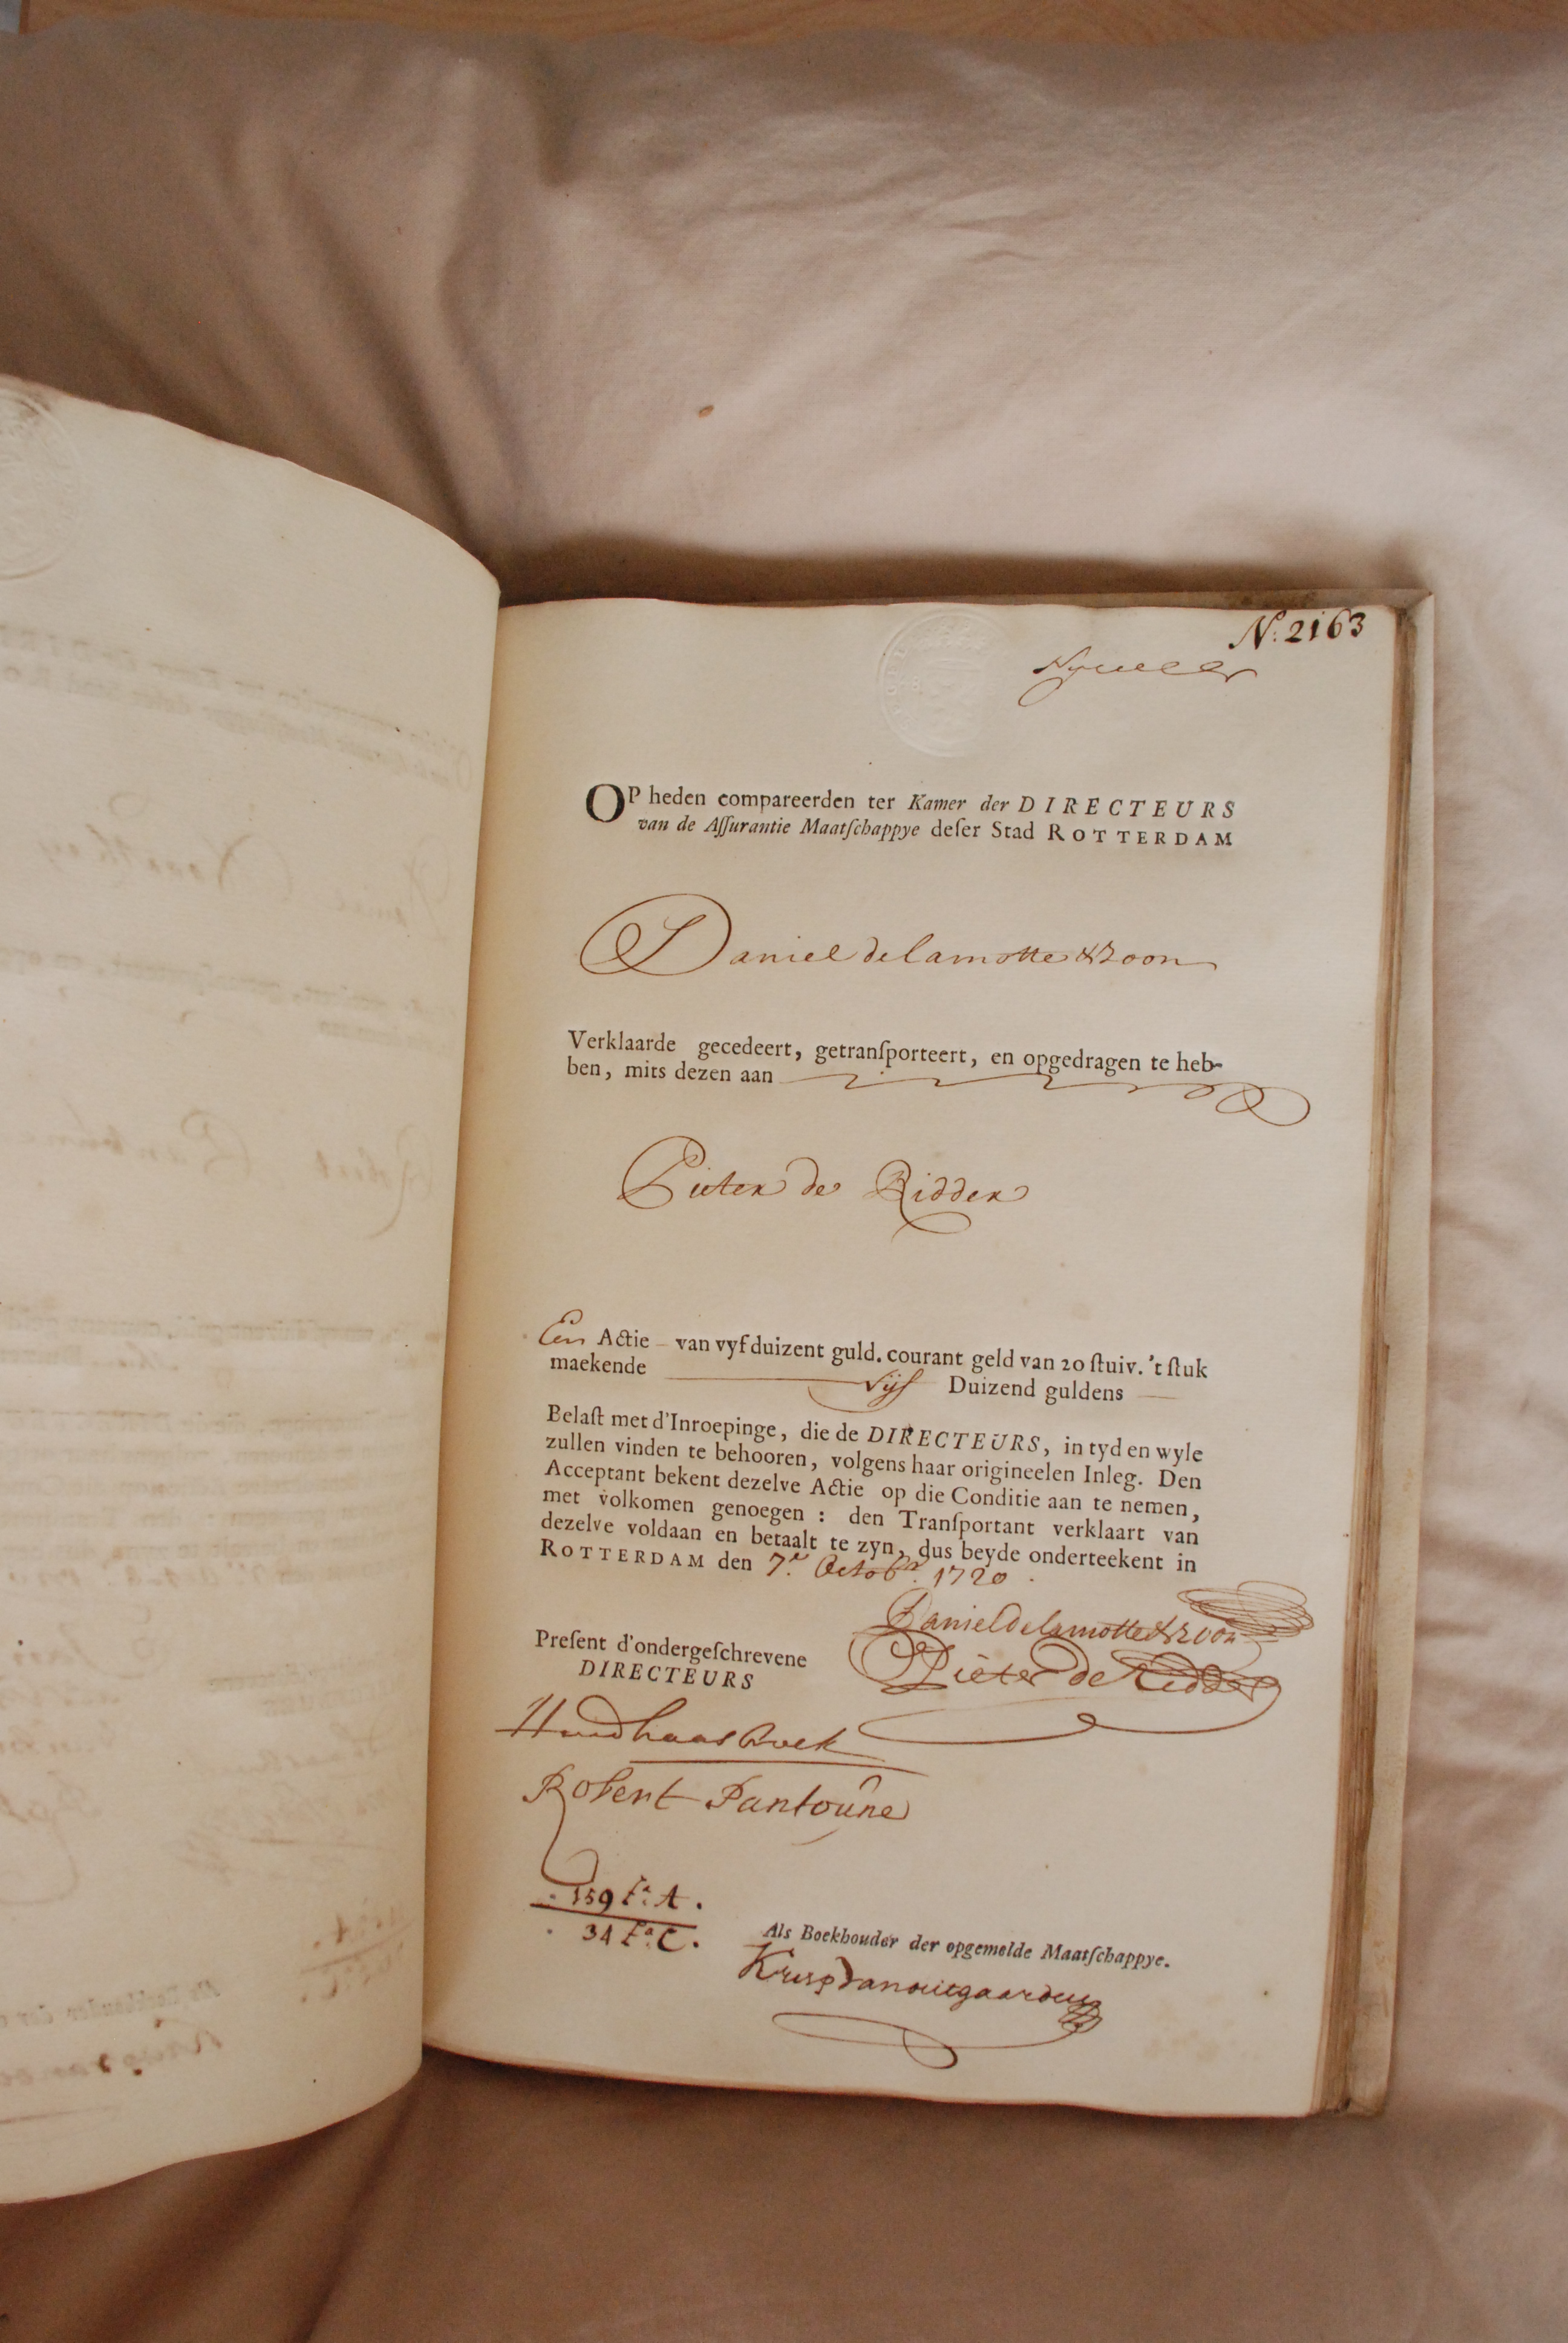 N: 2163
OP heden compareerden ter Kamer der DIRECTEURS
van de Aſſurantie Maatſchappye deſer Stad ROTTERDAM
Daniel de lamotte & zoon
Verklaarde gecedeert, getranſporteert, en opgedragen te heb-
ben, mits dezen aan
Pieter de Ridder
Een Actie van vyf duizent guld. courant geld van 20 ſtuiv. 't ſtuk
maekende Vijf Duizend guldens
Belaſt met d'Inroepinge, die de DIRECTEURS, in tyd en wyle
zullen vinden te behooren, volgens haar origineelen Inleg. Den
Acceptant bekent dezelve Actie op die Conditie aan te nemen,
met volkomen genoegen : den Tranſportant verklaart van
dezelve voldaan en betaalt te zyn, dus beyde onderteekent in
ROTTERDAM den 7.e Octobr. 1720
Daniel de lamotte & zoon
Preſent d'ondergeſchrevene
DIRECTEURS
Pieter de Ridder
Robert Pantoûne
159 f.o A.
34 f.o C.
Als Boekhouder der opgemelde Maatſchappye.